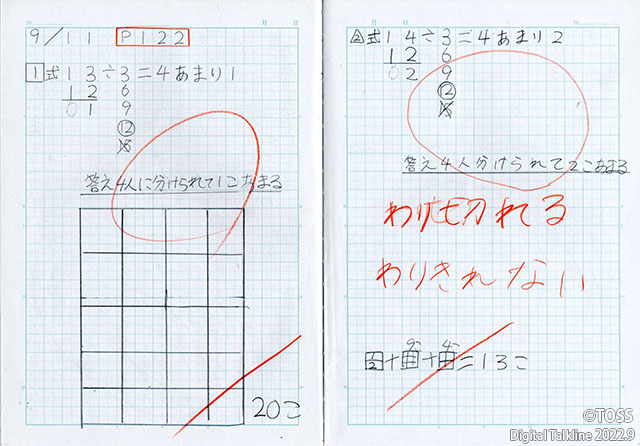 No.
月 日
9/11 P122
1 式 13÷3=4あまり1
12 6
01 9
⑫
答え4人に分けられて1こあまる
20こ
No.
月 日
2 式 14÷3=4あまり2
12 6
02 9
⑫
答え4人分けられて2こあまる
わり切れる
わりきれない
9 4
2+田+田=13こ
©TOSS
Digital Talkline 2022.9